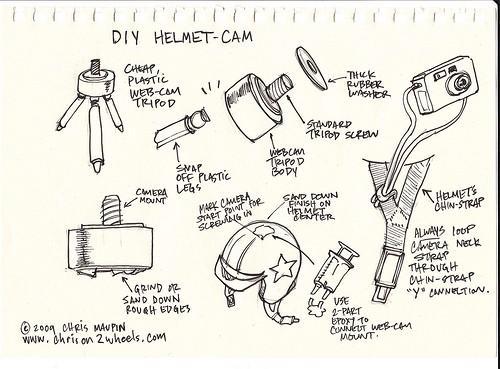 DIY HELMET-CAM
CHEAP,
PLASTIC
WEB-CAM
TRIPOD
SNAP
OFF PLASTIC
LEGS
THICK
RUBBER
WASHER
STANDARD
TRIPOD SCREW
WEBCAM
TRIPOD
BODY
CAMERA
MOUNT
GRIND OR
SAND DOWN
ROUGH EDGES
MARK CAMERA
START POINT FOR
SCREWING IN
SAND DOWN
FINISH ON
HELMET
CENTER
USE
2-PART
EPOXY TO
CONNECT WEB-CAM
MOUNT.
HELMET'S
CHIN-STRAP
ALWAYS LOOP
CAMERA NECK
STRAP
THROUGH
CHIN-STRAP
"Y" CONNECTION.
© 2009 CHRIS MAUPIN
www.chrison2wheels.com